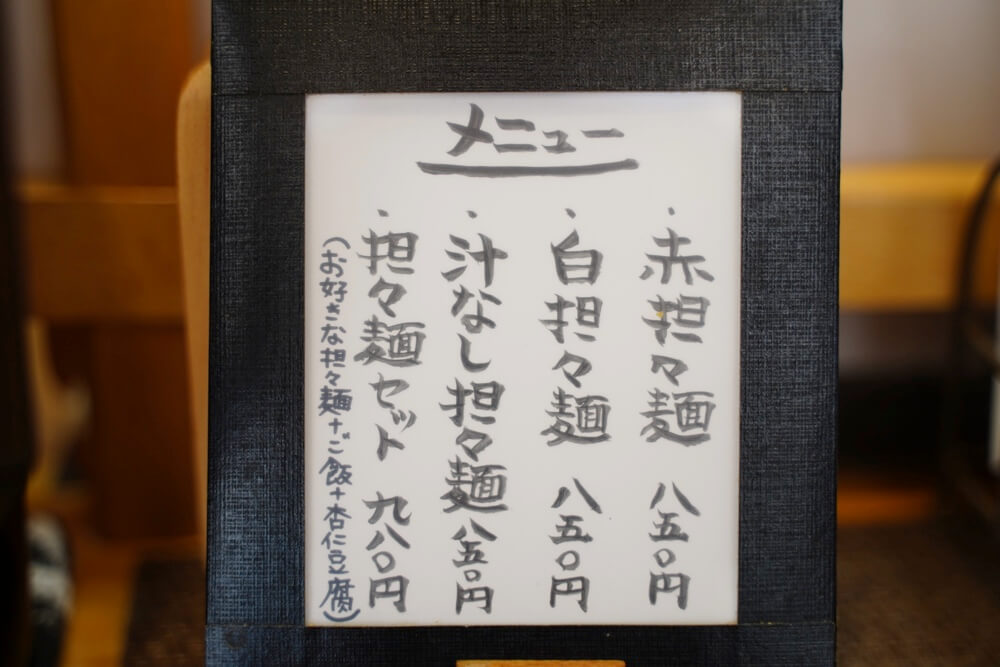 メニュー
・赤担々麺 八五〇円
・白担々麺 八五〇円
・汁なし担々麺 八五〇円
・担々麺セット 九八〇円
(お好きな担々麺+ご飯+杏仁豆腐)